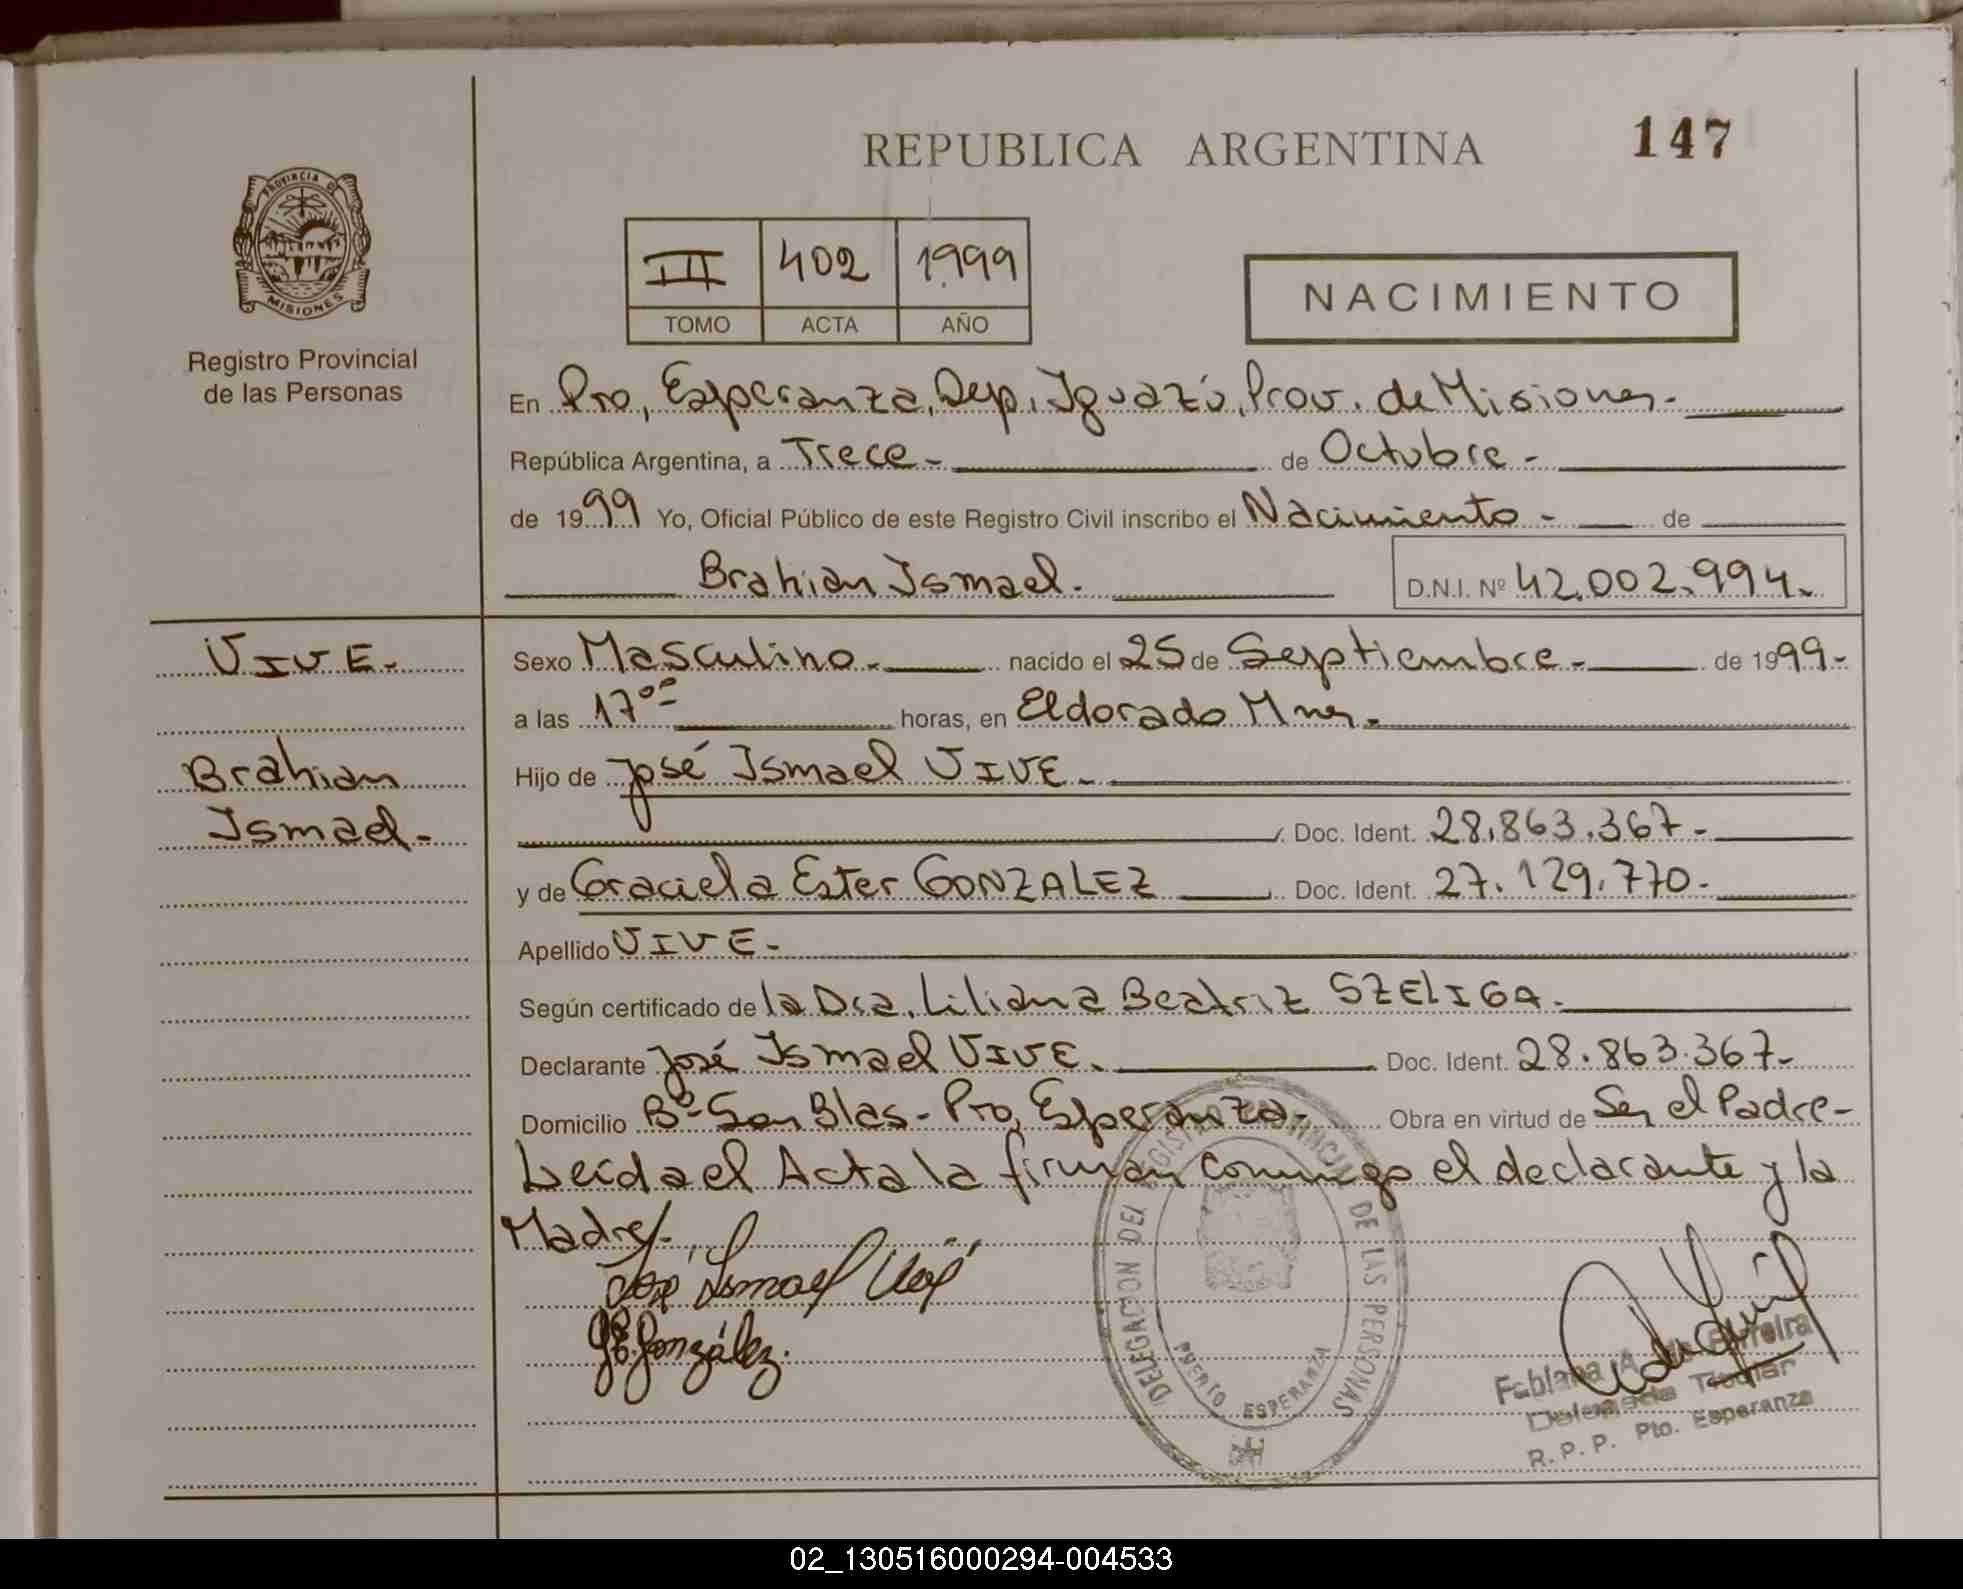 REPUBLICA ARGENTINA
147
PROVINCIA DE
MISIONES
Registro Provincial
de las Personas
III 402 1999
TOMO ACTA AÑO
NACIMIENTO
En Pto, Esperanza, Dep. Iguazú, Prov. de Misiones.
República Argentina, a Trece- de Octubre-
de 1999 Yo, Oficial Público de este Registro Civil inscribo el Nacimiento- de
Brahian Ismael.
D.N.I. Nº 42.002.994.
VIVE.
Brahian
Ismael.-
Sexo Masculino. nacido el 25 de Septiembre. de 1999-
a las 17ºº horas, en Eldorado Mnes.
Hijo de José Ismael VIVE.
Doc. Ident. 28.863.367-
y de Graciela Ester GONZALEZ Doc. Ident. 27.129.770.
Apellido VIVE-
Según certificado de la Dra. Liliana Beatriz SZELIGA.
Declarante José Ismael VIVE. Doc. Ident. 28.863.367-
Domicilio Bº San Blas- Pto, Esperanza- Obra en virtud de Ser el Padre-
Leída el Acta la firman conmigo el declarante y la
Madre.
José Ismael
González.
DELEGACION DEL REGISTRO PROVINCIAL DE LAS PERSONAS
PUERTO ESPERANZA
Fabiana A. de Ferreira
Delegada Titular
R.P.P. Pto. Esperanza
02_130516000294-004533